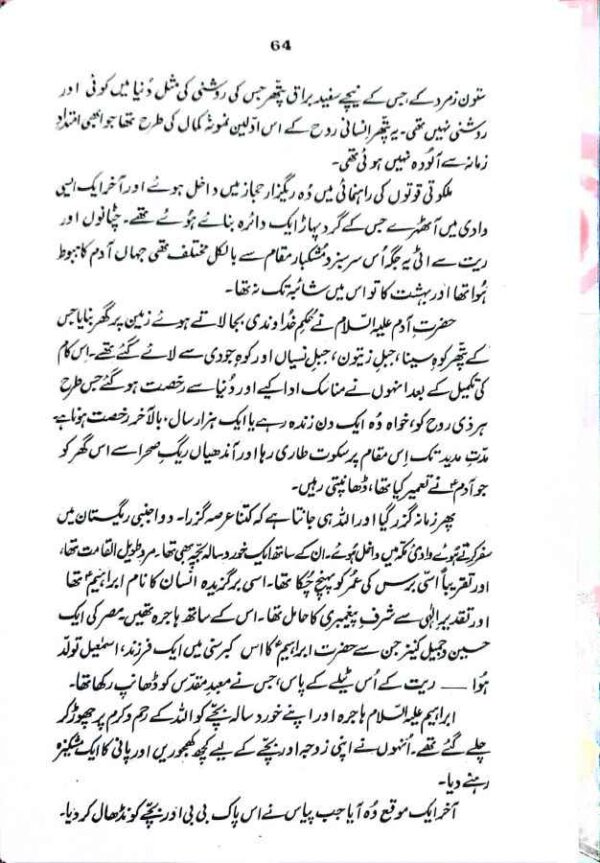 64
ستون زمرد کے، جس کے نیچے سفید براق پتھر جس کی روشنی کی مثل دُنیا میں کوئی اور
روشنی نہیں تھی۔ یہ پتھر اِنسانی روح کے اس اوّلین نمونۂ کمال کی طرح تھا جو ابھی امتدادِ
زمانہ سے آلودہ نہیں ہوئی تھی۔
ملکوتی قوتوں کی راہنمائی میں وُہ ریگزارِ حجاز میں داخل ہوئے اور آخر ایک ایسی
وادی میں آ ٹھہرے جس کے گرد پہاڑ ایک دائرہ بنائے ہُوئے تھے۔ چٹانوں اور
ریت سے اٹی یہ جگہ اُس سرسبز و مُشکبار مقام سے بالکل مختلف تھی جہاں آدم کا ہبوط
ہُوا تھا اور بہشت کا تو اس میں شائبہ تک نہ تھا۔
حضرتِ آدم علیہ السّلام نے حُکمِ خداوندی بجا لاتے ہوئے زمین پر گھر بنایا جس
کے پتھر کوہِ سینا، جبلِ زیتون، جبلِ نسیاں اور کوہِ جودی سے لائے گئے تھے۔ اِس کام
کی تکمیل کے بعد انہوں نے مناسک ادا کیے اور دُنیا سے رخصت ہو گئے جس طرح
ہر ذی روح کو، خواہ وُہ ایک دن زندہ رہے یا ایک ہزار سال، بالآخر رخصت ہونا ہے
مدّتِ مدید تک اِس مقام پر سکوت طاری رہا اور آندھیاں ریگِ صحرا سے اس گھر کو
جو آدمؑ نے تعمیر کیا تھا، ڈھانپتی رہیں۔
پھر زمانہ گزر گیا اور اللہ ہی جانتا ہے کہ کتنا عرصہ گزرا۔ دو اجنبی ریگستان میں
سفر کرتے ہُوئے وادیٔ مکّہ میں داخل ہُوئے۔ ان کے ساتھ ایک خورد سالہ بچّہ بھی تھا۔ مرد طویل القامت تھا،
اور تقریباً اسّی برس کی عُمر کو پہنچ چُکا تھا۔ اسی برگزیدہ انسان کا نام ابراہیمؑ تھا
اور تقدیرِ الٰہی سے شرفِ پیغمبری کا حامل تھا۔ اس کے ساتھ ہاجرہ تھیں۔ مصر کی ایک
حسین و جمیل کنیز جن سے حضرت ابراہیمؑ کا اس کبرسنی میں ایک فرزند، اسمٰعیل تولّد
ہُوا —— ریت کے اُس ٹیلے کے پاس، جس نے معبدِ مقدّس کو ڈھانپ رکھا تھا۔
ابراہیم علیہ السّلام ہاجرہ اور اپنے خورد سالہ بچّے کو اللہ کے رحم و کرم پر چھوڑ کر
چلے گئے تھے۔ اُنہوں نے اپنی زوجہ اور بچّے کے لیے کچھ کھجوریں اور پانی کا ایک مشکیزہ
رہنے دیا۔
آخر ایک موقع وُہ آیا جب پیاس نے اس پاک بی بی اور بچّے کو نڈھال کر دیا۔